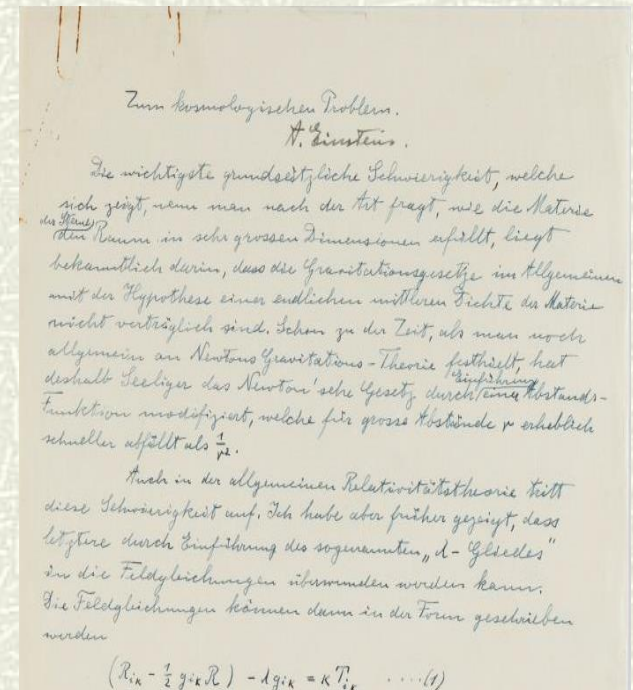 Zum kosmologischen Problem.
A. Einstein.
Die wichtigste grundsätzliche Schwierigkeit, welche
sich zeigt, wenn man nach der Art fragt, wie die Materie
der Sterne
den Raum in sehr grossen Dimensionen erfüllt, liegt
bekanntlich darin, dass die Gravitationsgesetze im Allgemeinen
mit der Hypothese einer endlichen mittleren Dichte der Materie
nicht verträglich sind. Schon zu der Zeit, als man noch
allgemein an Newtons Gravitations-Theorie festhielt, hat
Einführung
deshalb Seeliger das Newton'sche Gesetz durch eine Abstands-
Funktion modifiziert, welche für grosse Abstände r erheblich
schneller abfällt als 1/r².
Auch in der allgemeinen Relativitätstheorie tritt
diese Schwierigkeit auf. Ich habe aber früher gezeigt, dass
letztere durch Einführung des sogenannten „λ-Gliedes"
in die Feldgleichungen überwunden werden kann.
Die Feldgleichungen können dann in der Form geschrieben
werden
(R_{ik} - 1/2 g_{ik} R) - λ g_{ik} = κ T_{ik} .....(1)